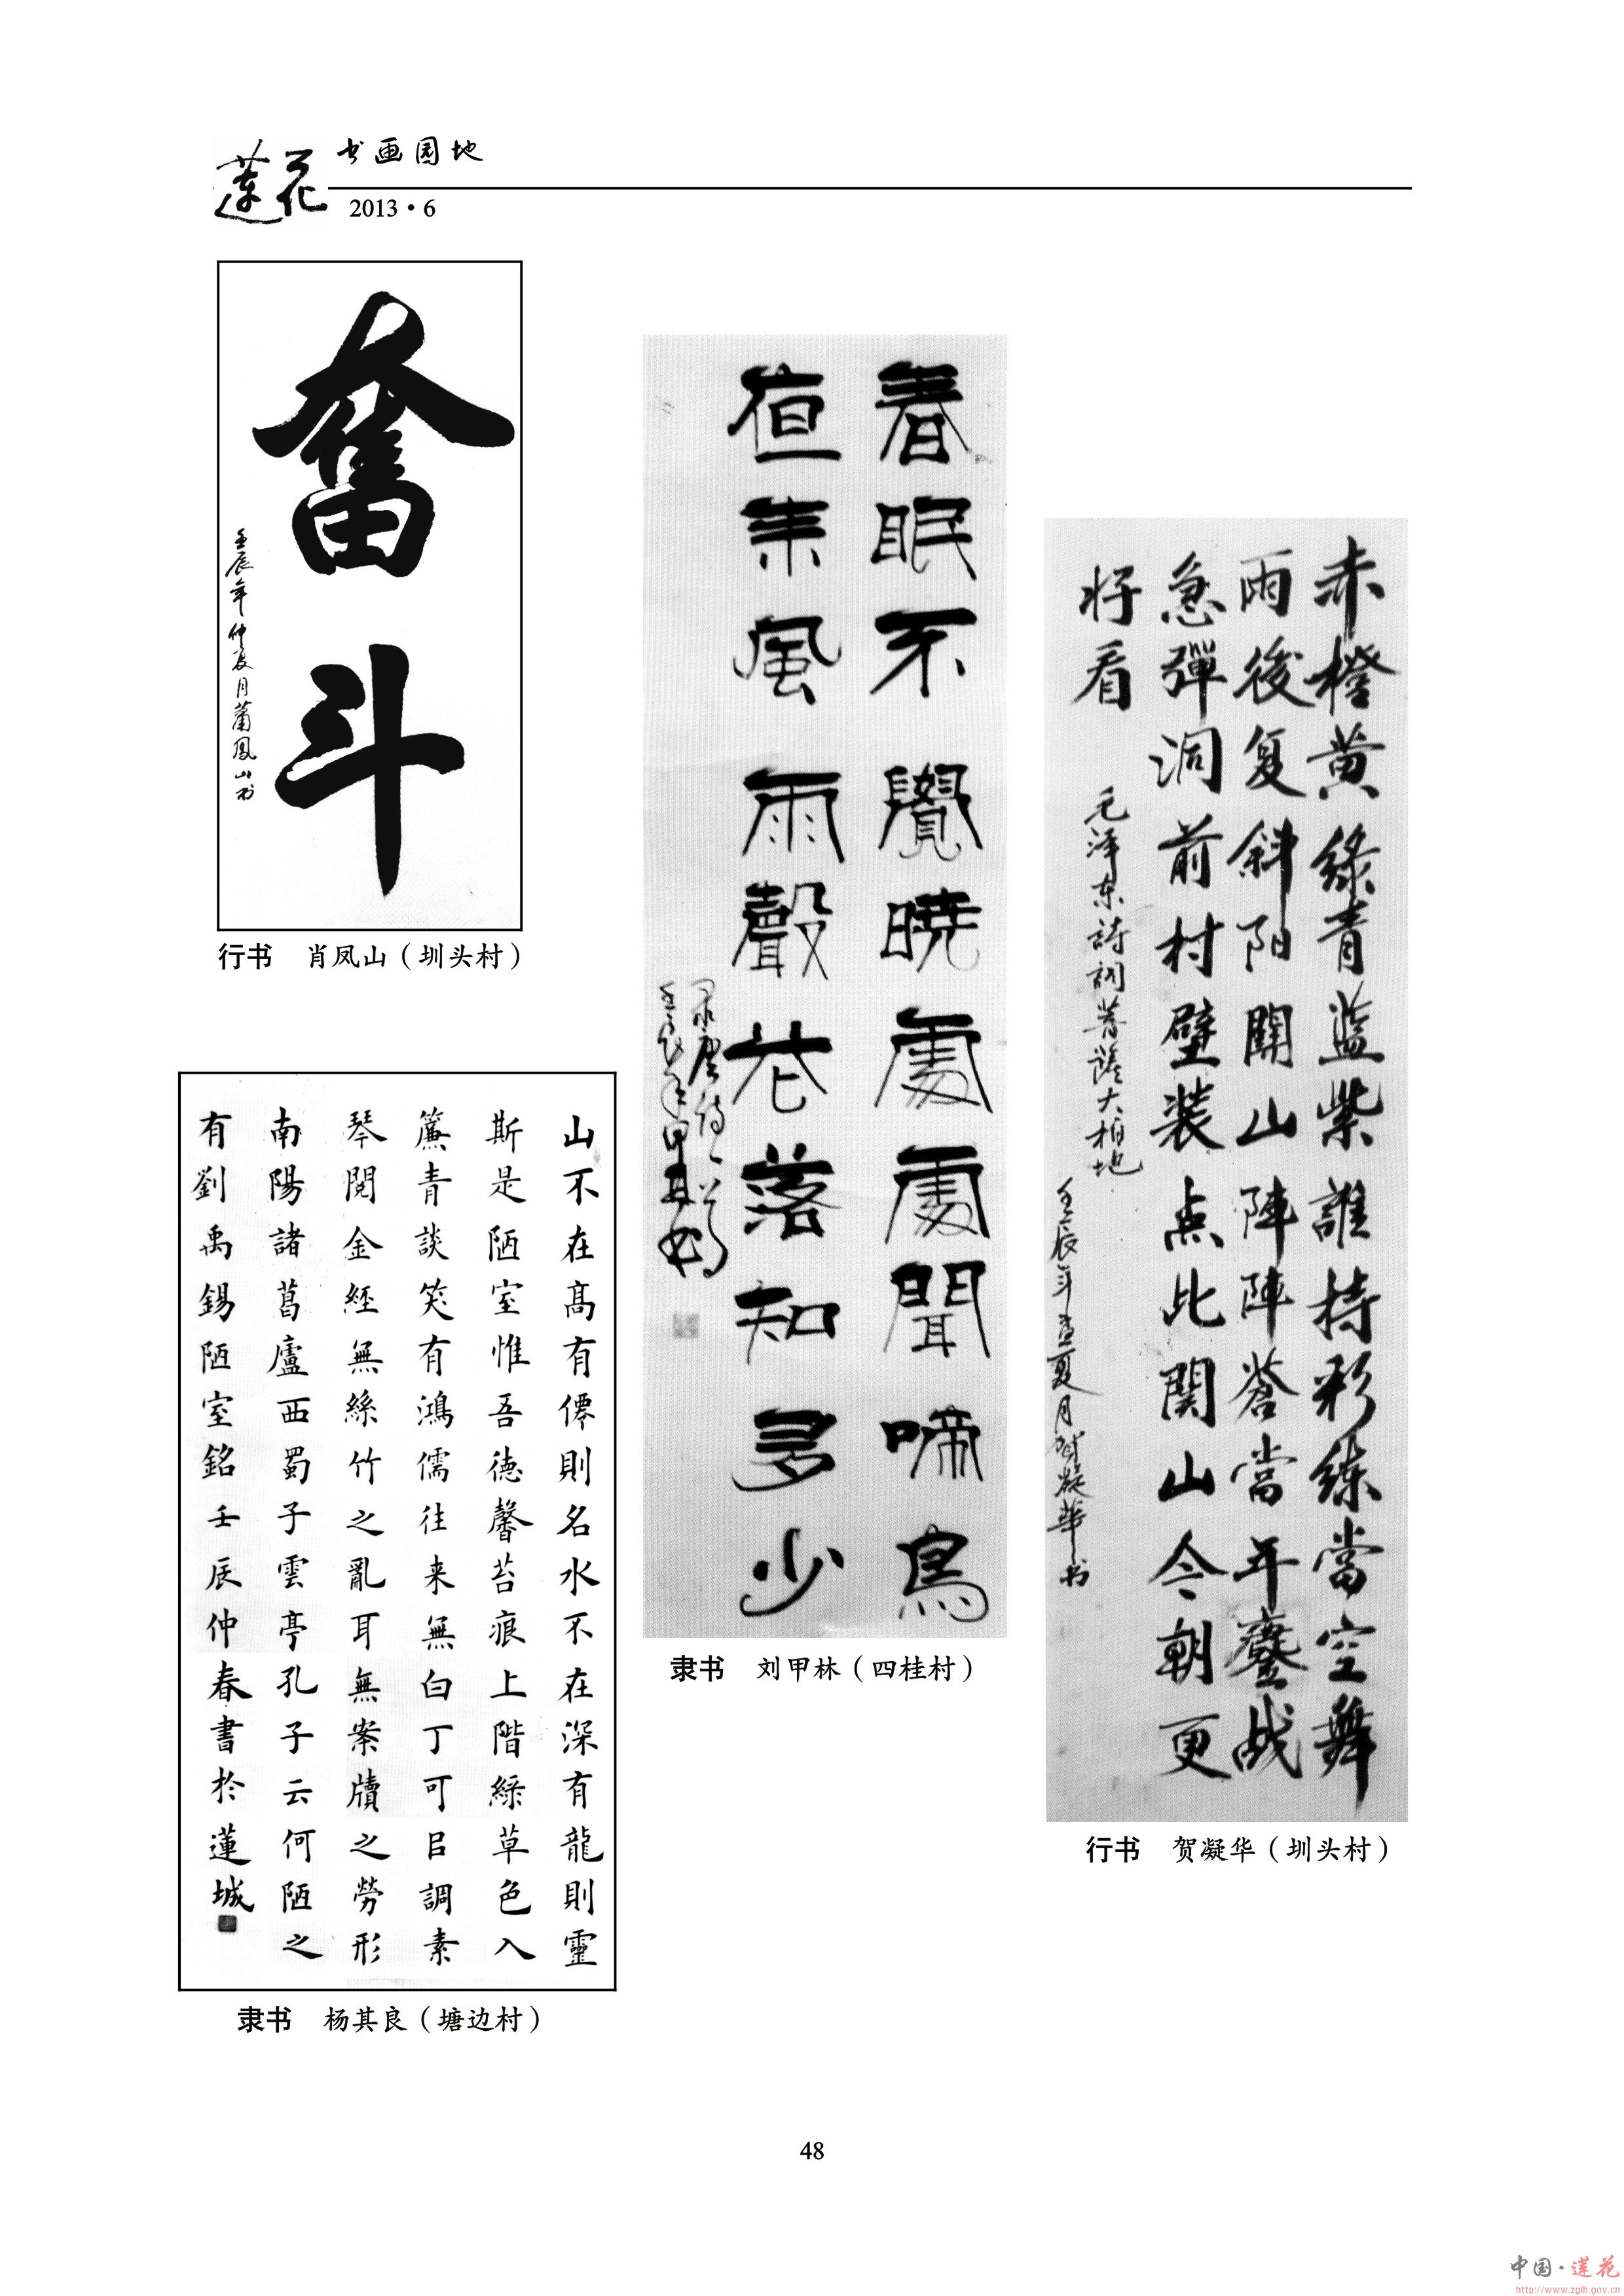 莲花
书画园地
2013·6
奮斗
壬辰年仲夏月蕭鳳山书
行书 肖凤山（圳头村）
山不在髙有僊則名水不在深有龍則靈
斯是陋室惟吾德馨苔痕上階緑草色入
簾青談笑有鴻儒往来無白丁可㠯調素
琴閱金經無絲竹之亂耳無案牘之勞形
南陽諸葛廬西蜀子雲亭孔子云何陋之
有劉禹錫陋室銘壬辰仲春書於蓮城
隶书 杨其良（塘边村）
春眠不覺暁處處聞啼鳥
亱来風雨聲花落知多少
录唐诗一首
壬辰年甲林书
隶书 刘甲林（四桂村）
赤橙黄綠青藍紫誰持彩練當空舞
雨後复斜阳關山陣陣蒼當年鏖战
急彈洞前村壁装点此関山今朝更
好看
毛泽东詩詞菩薩大柏地
壬辰年孟夏月贺凝華书
行书 贺凝华（圳头村）
48
中国·莲花
http://www.zglh.gov.cn